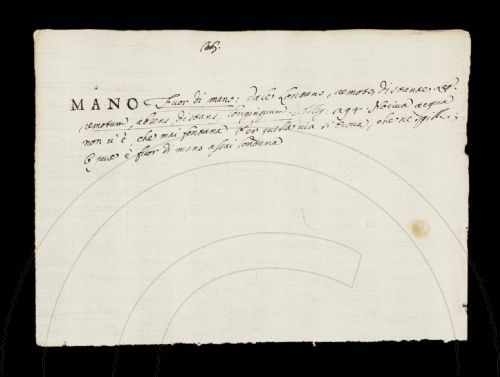 MANO Fuor di mano; vale Lontano, remoto, distante
remotum, absens, distans, longinquum. 194. Nociva acqua
non vi è, che mai fontana Per quella via si trova, che
è fuor di mano assai lontana